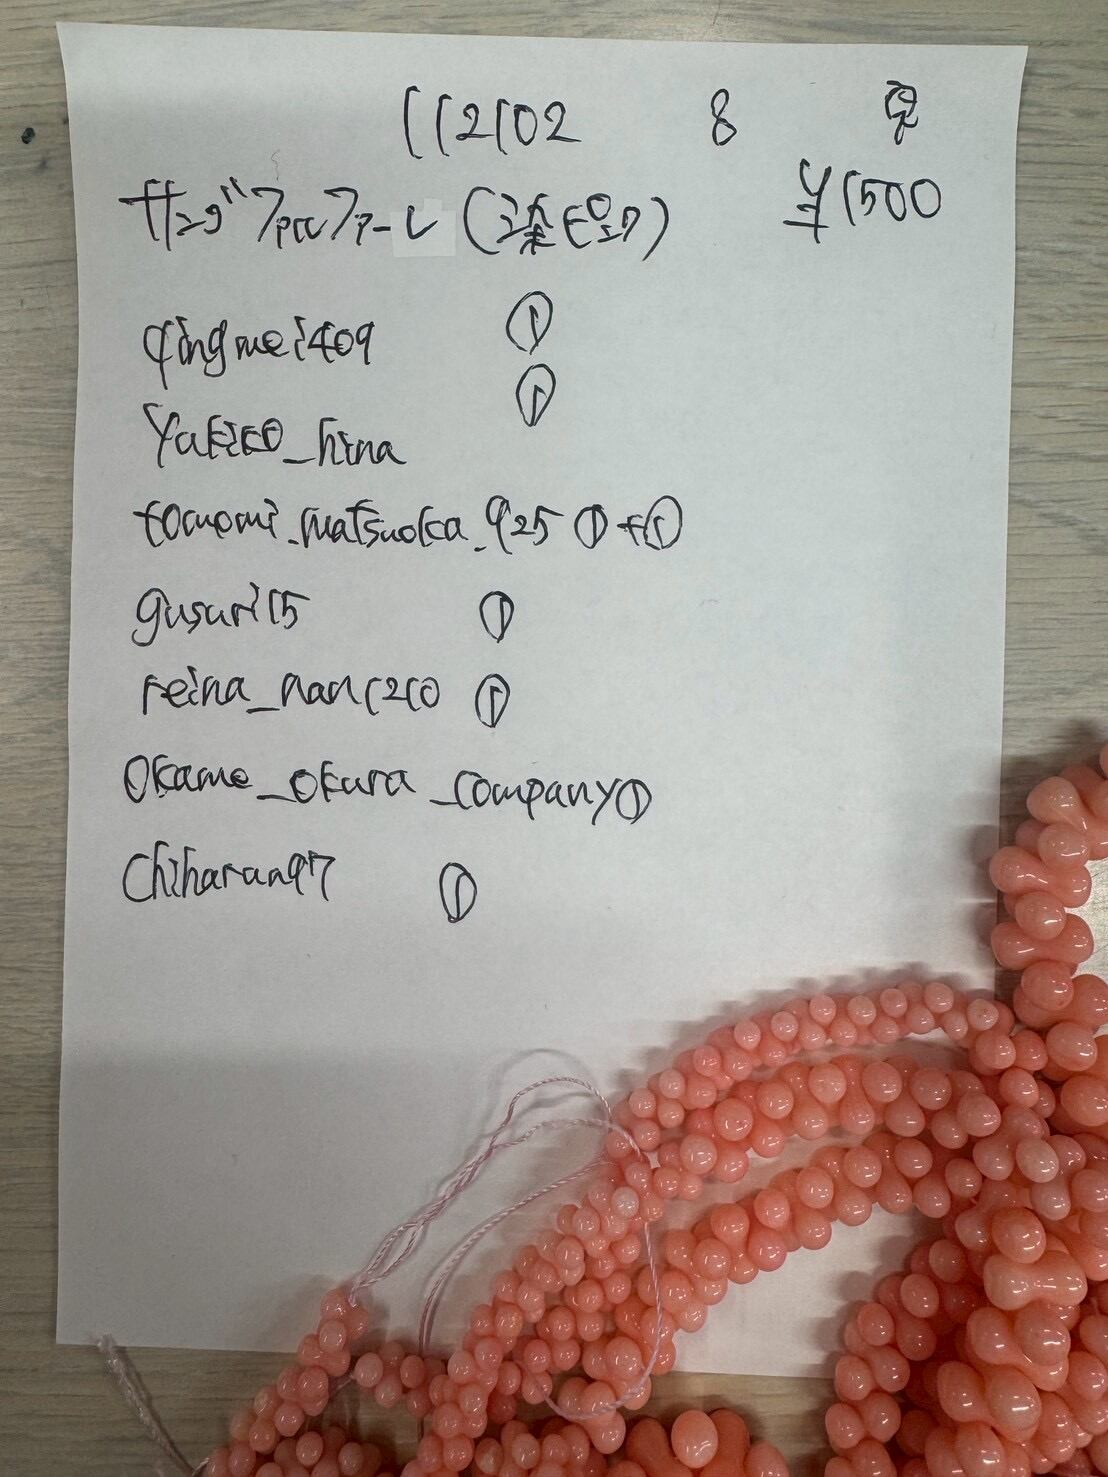 112102 8
サンゴ ¥1500
qingmei409 ①
yakiko_hina ①
tomomi_matsuoka_925 ①+①
gusuri15 ①
reina_nan1210 ①
okame_okura_company ①
chiharan97 ①